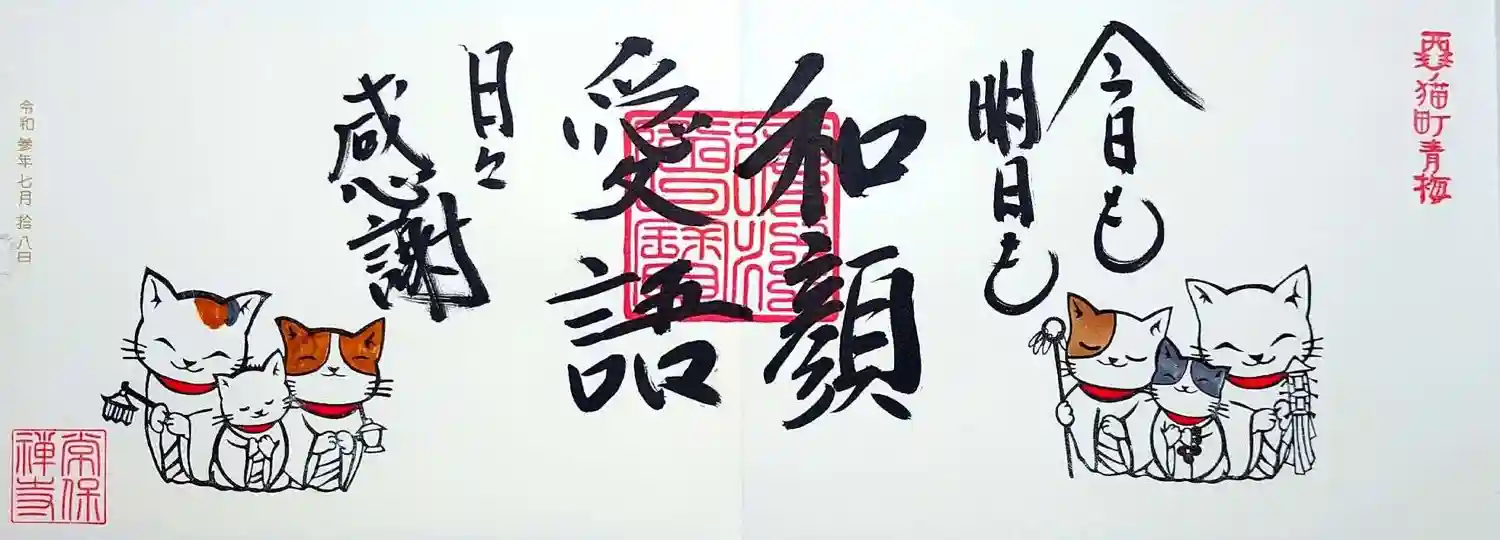 猫町青梅
今日も
明日も
和顔
愛語
日々
感謝
令和參年七月拾八日
常保
禪寺